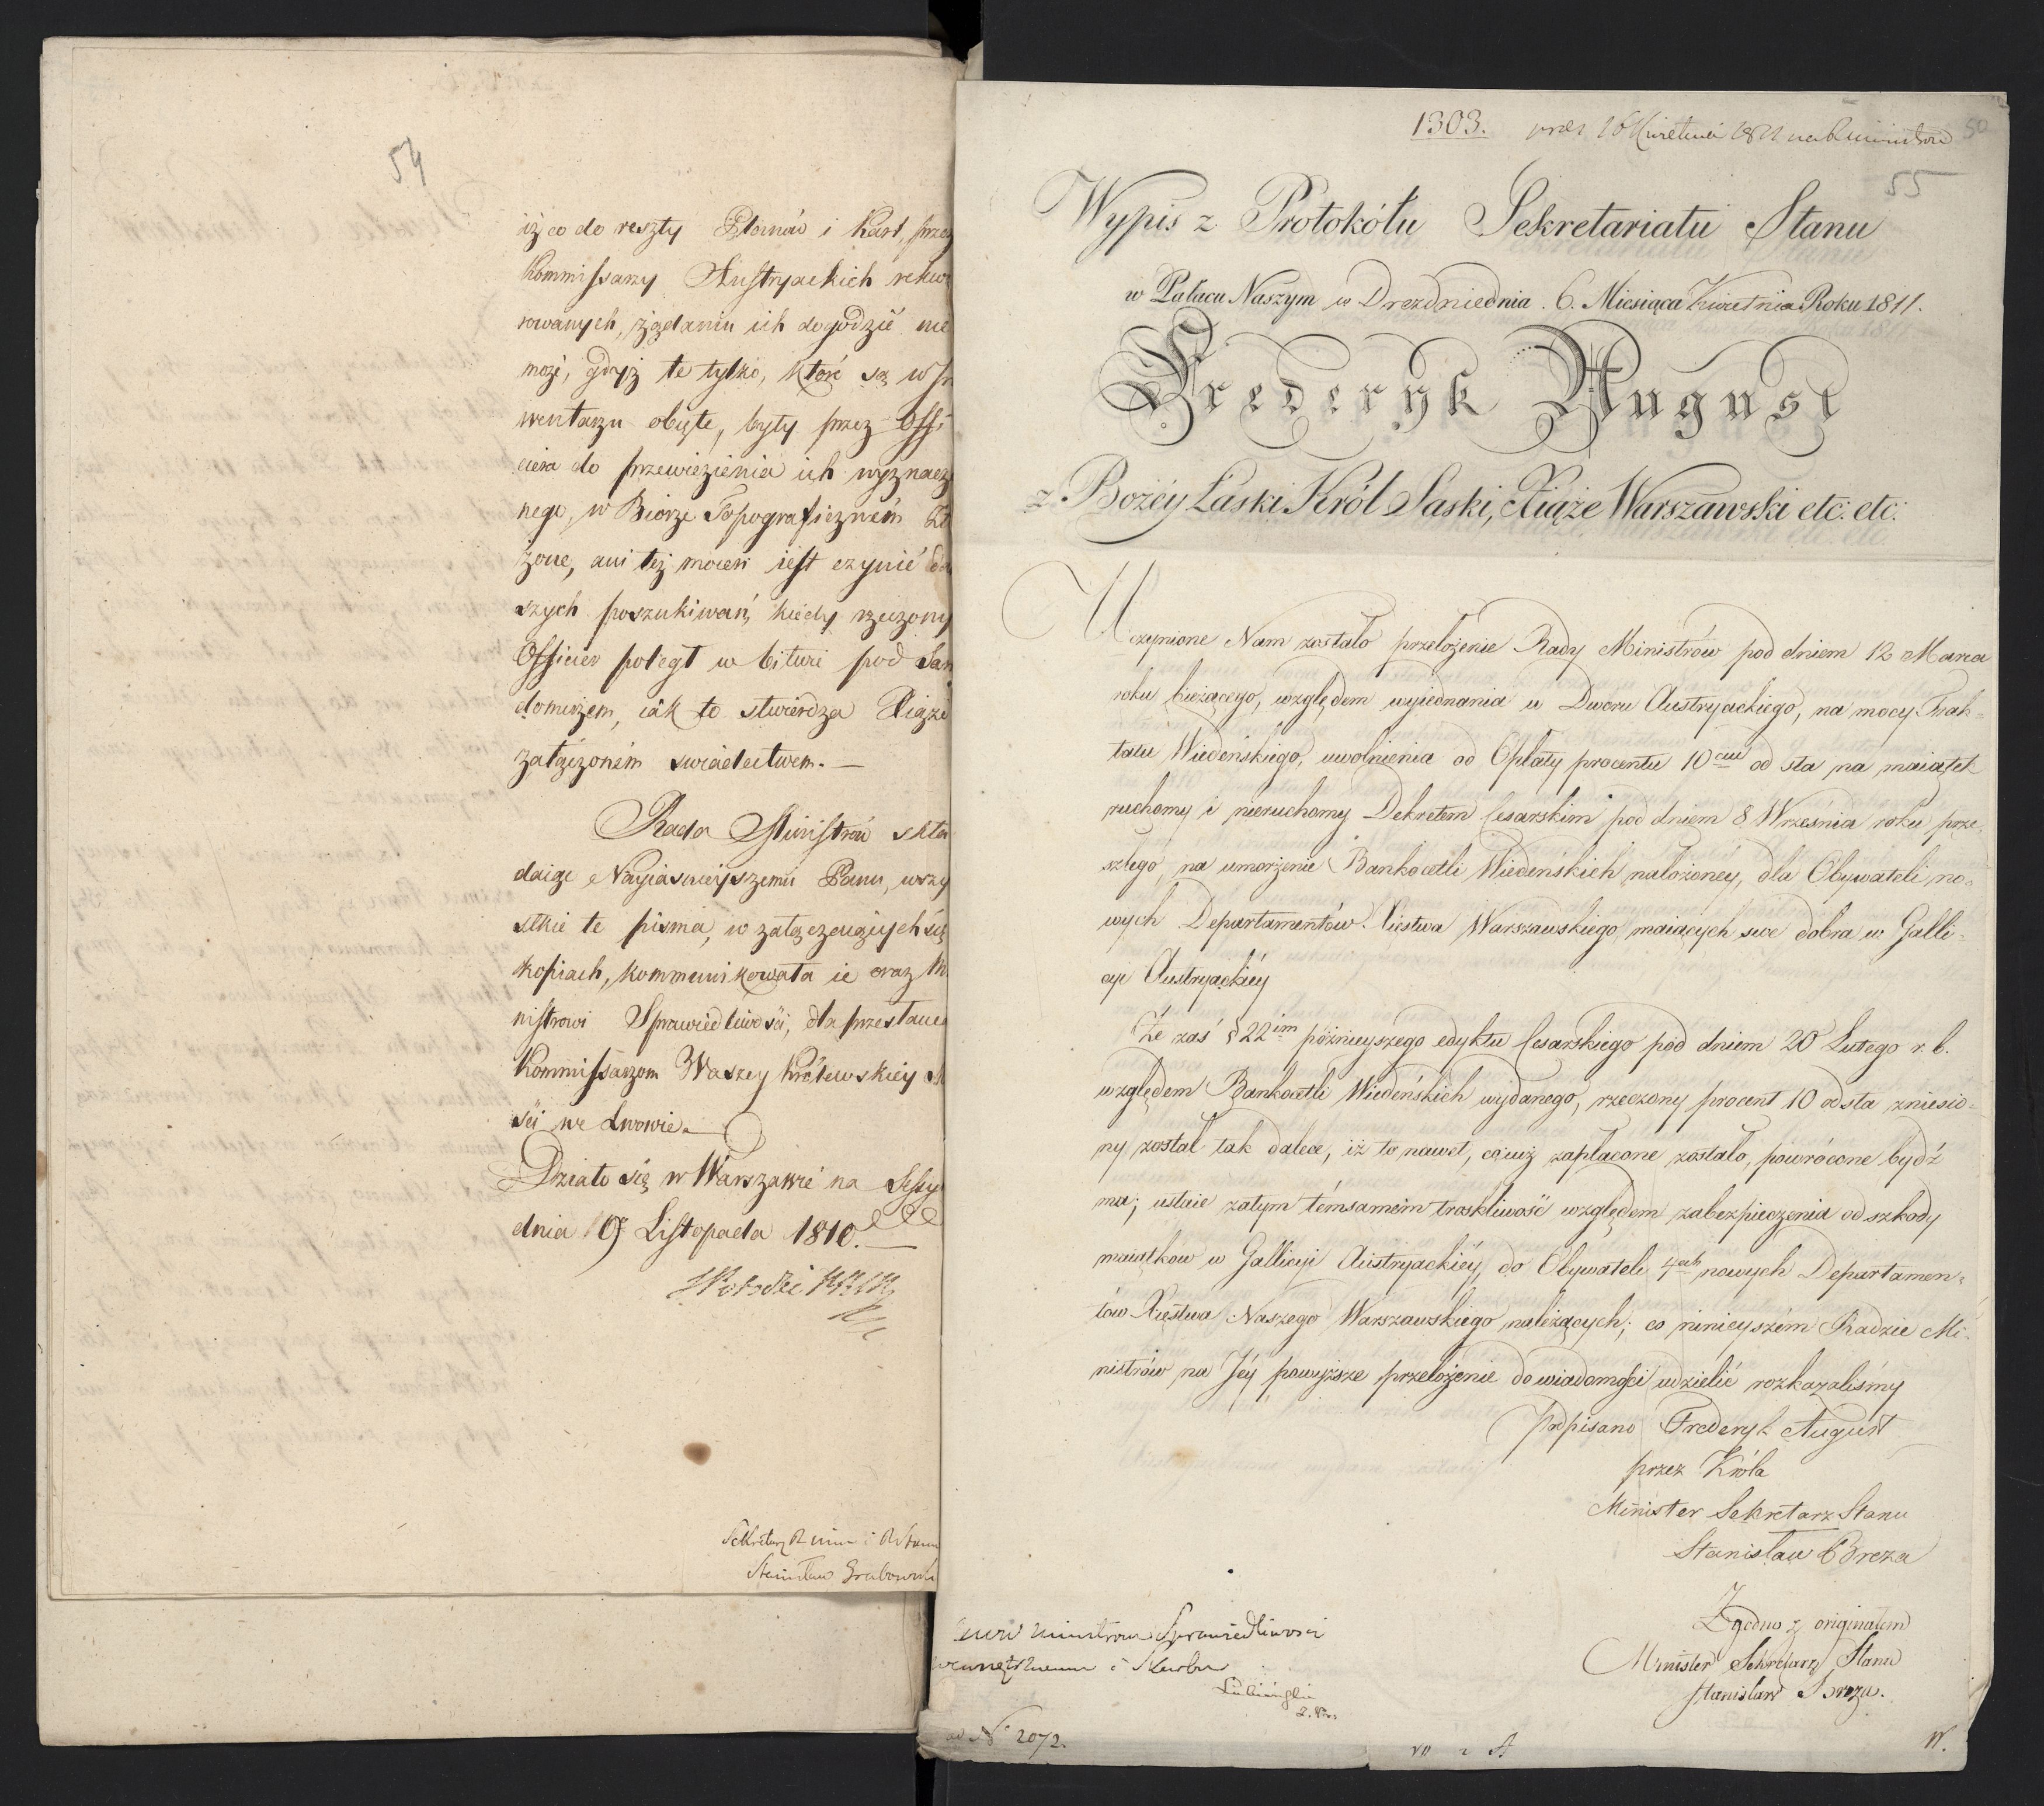 54
iż co do reszty Planów i Kart, przez
Kommissarzy Austryackich rekwi
rowanych, żądaniu ich dogodzić nie
może, gdyż te tylko, które są w In
wentarzu obięte, były przez Offi
ciera do przewiezienia ich wyznaczo
nego, w Biorze Topograficzném zło
żone, ani też mocen iest czynić dal
szych poszukiwań, kiedy rzeczony
Officier poległ w bitwie pod San
domirzem, iák to stwierdza Xiąże
załączoném świadectwem. —
Rada Ministrów skła
daiąc Nayiaśnieyszemu Panu, wszy
stkie te pisma, w załączaiących się
kopiach, kommunikowała ie oraz Mi
nistrowi Sprawiedliwości, dla przesłania
Kommissarzom Waszey Królewskiey M
ści we Lwowie. —
Działo się w Warszawie na Sessyi
dnia 19 Listopada 1810. —
Sekretarz i
Stanisław Grabowski
1303. 16 Kwietnia 1811 50
55
Wypis z Protokółu Sekretariatu Stanu
w Pałacu Naszym w Dreznie dnia . 6. Miesiąca Kwietnia Roku 1811.
Fryderyk August
z Bożéy Łaski Król Saski, Xiąże Warszawski etc: etc:
Uczynione Nam zostało przełożenie Rady Ministrów pod dniem 12 Marca
roku bieżącego, względem wyiednania u Dworu Austryackiego, na mocy Trak-
tatu Wiedeńskiego, uwolnienia od Opłaty procentu 10ciu od sta na maiątek
ruchomy i nieruchomy Dekretem Cesarskim pod dniem 8 Września roku prze-
szłego, na umorzenie Bankocetli Wiedeńskich nałożonéy, dla Obywateli no-
wych Departamentów Xięstwa Warszawskiego, maiących swe dobra w Galli-
cyi Austryackiéy
Że zaś § 22im póżnieyszego edyktu Cesarskiego pod dniem 20 Lutego r. b.
względem Bankocetli Wiedeńskich wydanego, rzeczony procent 10 od sta zniesio-
ny został tak dalece, iż to nawet, co iuż zapłacone zostało, powrócone bydź
ma; ustaie zatym témsamém troskliwość względem zabezpieczenia od szkody
maiątkow w Gallicyi Austryackiéy, do Obywateli 4ech nowych Departamen-
tów Xięstwa Naszego Warszawskiego należących; co ninieyszém Radzie Mi-
nistrów na Jéy powyższe przełożenie do wiadomości udzielić rozkazaliśmy
podpisano Fryderyk August
przez Króla
Minister Sekretarz Stanu
Stanisław Breza
Zgodno z originałem
Minister Sekretarz Stanu
Stanisław Breza.
Ministrowi Sprawiedliwości
i Skarbu
Lubieński
ad No 2072.
W.